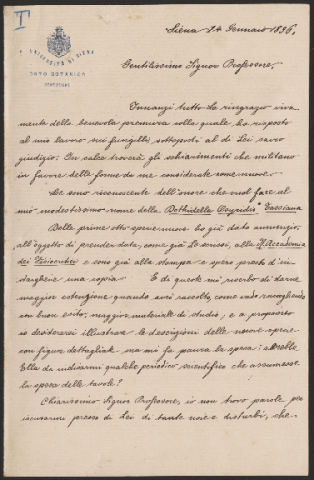 I
R. UNIVERSITÀ DI SIENA
ORTO BOTANICO
Siena 24 Gennaio 1896.
Gentilissimo Signor Professore,
Innanzi tutto La ringrazio viva-
mente della benevola premura colla quale ha risposto
al mio lavoro sui funghilli, sottoposti al di Lei savio
giudizio. In calce troverà gli schiarimenti che militano
in favore delle forme da me considerate come nuove.
Le sono riconoscente dell'onore che vuol fare al
mio modestissimo nome della Tassiana
Delle prime otto specie nuove ho già dato
all'oggetto di prender data, come già Le scrissi, alla R. Accademia
dei Fisiocritici e sono già alla stampa e spero presto d'in-
dargliene una copia. E di queste mi riserbo di darne
maggior estensione quando avrò raccolto, come vado raccogliendo
con buon esito, maggior materiale di studio, e a proposito
io desidererei illustrare le descrizioni delle nuove spe-
con figure dettagliate ma mi fa paura la spesa:
Ella da indicarmi qualche periodico scientifico che assumesse
la spesa delle tavole?
Chiarissimo Signor Professore, io non trovo parole per
iscusarmi presso di Lei di tante noie e disturbi, che